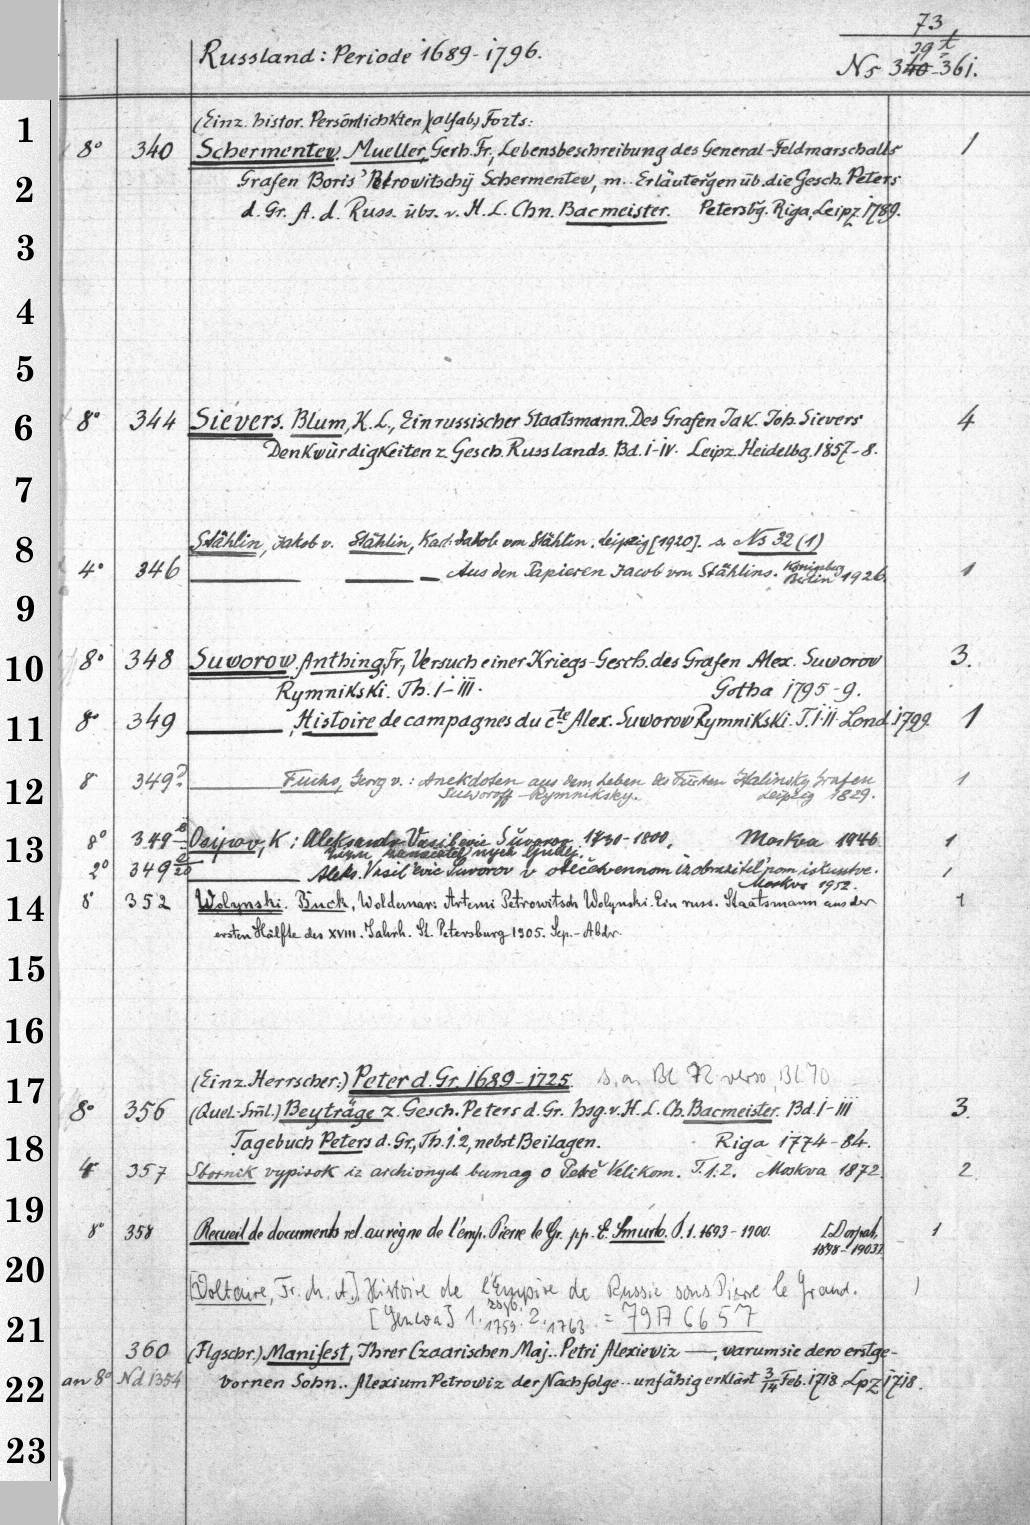 73
Russland: Periode 1689-1796.
Ns 340-361.
1
(Einz. histor. Persönlichkten)(alfab.) Forts:
8° 340 Schermentew. Mueller, Gerh. Fr., Lebensbeschreibung des General-Feldmarschalls 1
2
Grafen Boris' Petrowitschij Schermentew, m.. Erläutergen üb. die Gesch. Peters
d. Gr. A. d. Russ. übs. v. H. L. Chn. Bacmeister. Petersbg. Riga, Leipz. 1789.
3
4
5
6
8° 344 Sievers. Blum, K. L., Ein russischer Staatsmann. Des Grafen Jak. Joh. Sievers 4
Denkwürdigkeiten z. Gesch. Russlands. Bd. I-IV. Leipz. Heidelbg. 1857-8.
7
8
Stählin, Jakob v. Stählin, Karl: Jakob von Stählin. Leipzig [1920]. s. Ns 32 (1)
4° 346 Aus den Papieren Jacob von Stählins. Königsberg Berlin 1926. 1
9
10
8° 348 Suworow. Anthing, Fr., Versuch einer Kriegs-Gesch. des Grafen Alex. Suworow 3.
Rymnikski. Th. I-III. Gotha 1795-9.
11
8° 349 , Histoire de campagnes du cte Alex. Suworow Rymnikski. T. I-II. Lond. 1799. 1
12
8° 349a Fuchs, Georg v.: Anekdoten aus dem Leben des Fürsten Italinsky Grafen 1
Suworoff-Rymniksky. Leipzig 1829.
13
8° 349 Osipov, K: Aleksandr Vasil'evic Suvorov 1730-1800. Moskva 1946 1
Žizn' zamečatel'nych ljudej.
2° 349 Aleks. Vasil'evic Suvorov v otečestvennom izobrazitel'nom iskusstve. 1
Moskva 1952.
14
8° 352 Wolynski. Buck, Woldemar: Artemi Petrowitsch Wolynski. Ein russ. Staatsmann aus der 1
ersten Hälfte des XVIII. Jahrh. St. Petersburg 1905. Sep.-Abdr.
15
16
17
(Einz. Herrscher:) Peter d. Gr. 1689-1725. s. a. Bl 72 verso, Bl 70
8° 356 (Quel.-Sml.) Beyträge z. Gesch. Peters d. Gr. hsg. v. H. L. Ch. Bacmeister. Bd. I-III 3.
18
Tagebuch Peters d. Gr., Th. 1. 2, nebst Beilagen. Riga 1774-84.
4° 357 Sbornik vypisok iz archivnych bumag o Petrě Velikom. T. 1. 2. Moskva 1872. 2
19
8° 358 Recueil de documents rel. au règne de l'emp. Pierre le Gr. pp. E. Smurlo. T. 1. 1693-1700. [Dorpat, 1
1898-1903]
20
[Voltaire, Fr. M. A.] Histoire de l'Empire de Russie sous Pierre le Grand. 1
[Geneva] 1. 1759. 2. 1763. = 79 A 6657
21
360 (Flgschr.) Manifest, Ihrer Czaarischen Maj.. Petri Alexiewiz —, warum sie dero erstge-
22
an 8° Nd 1354 bornen Sohn.. Alexium Petrowiz der Nachfolge.. unfähig erklärt 3/14 Feb. 1718. Lpz 1718.
23